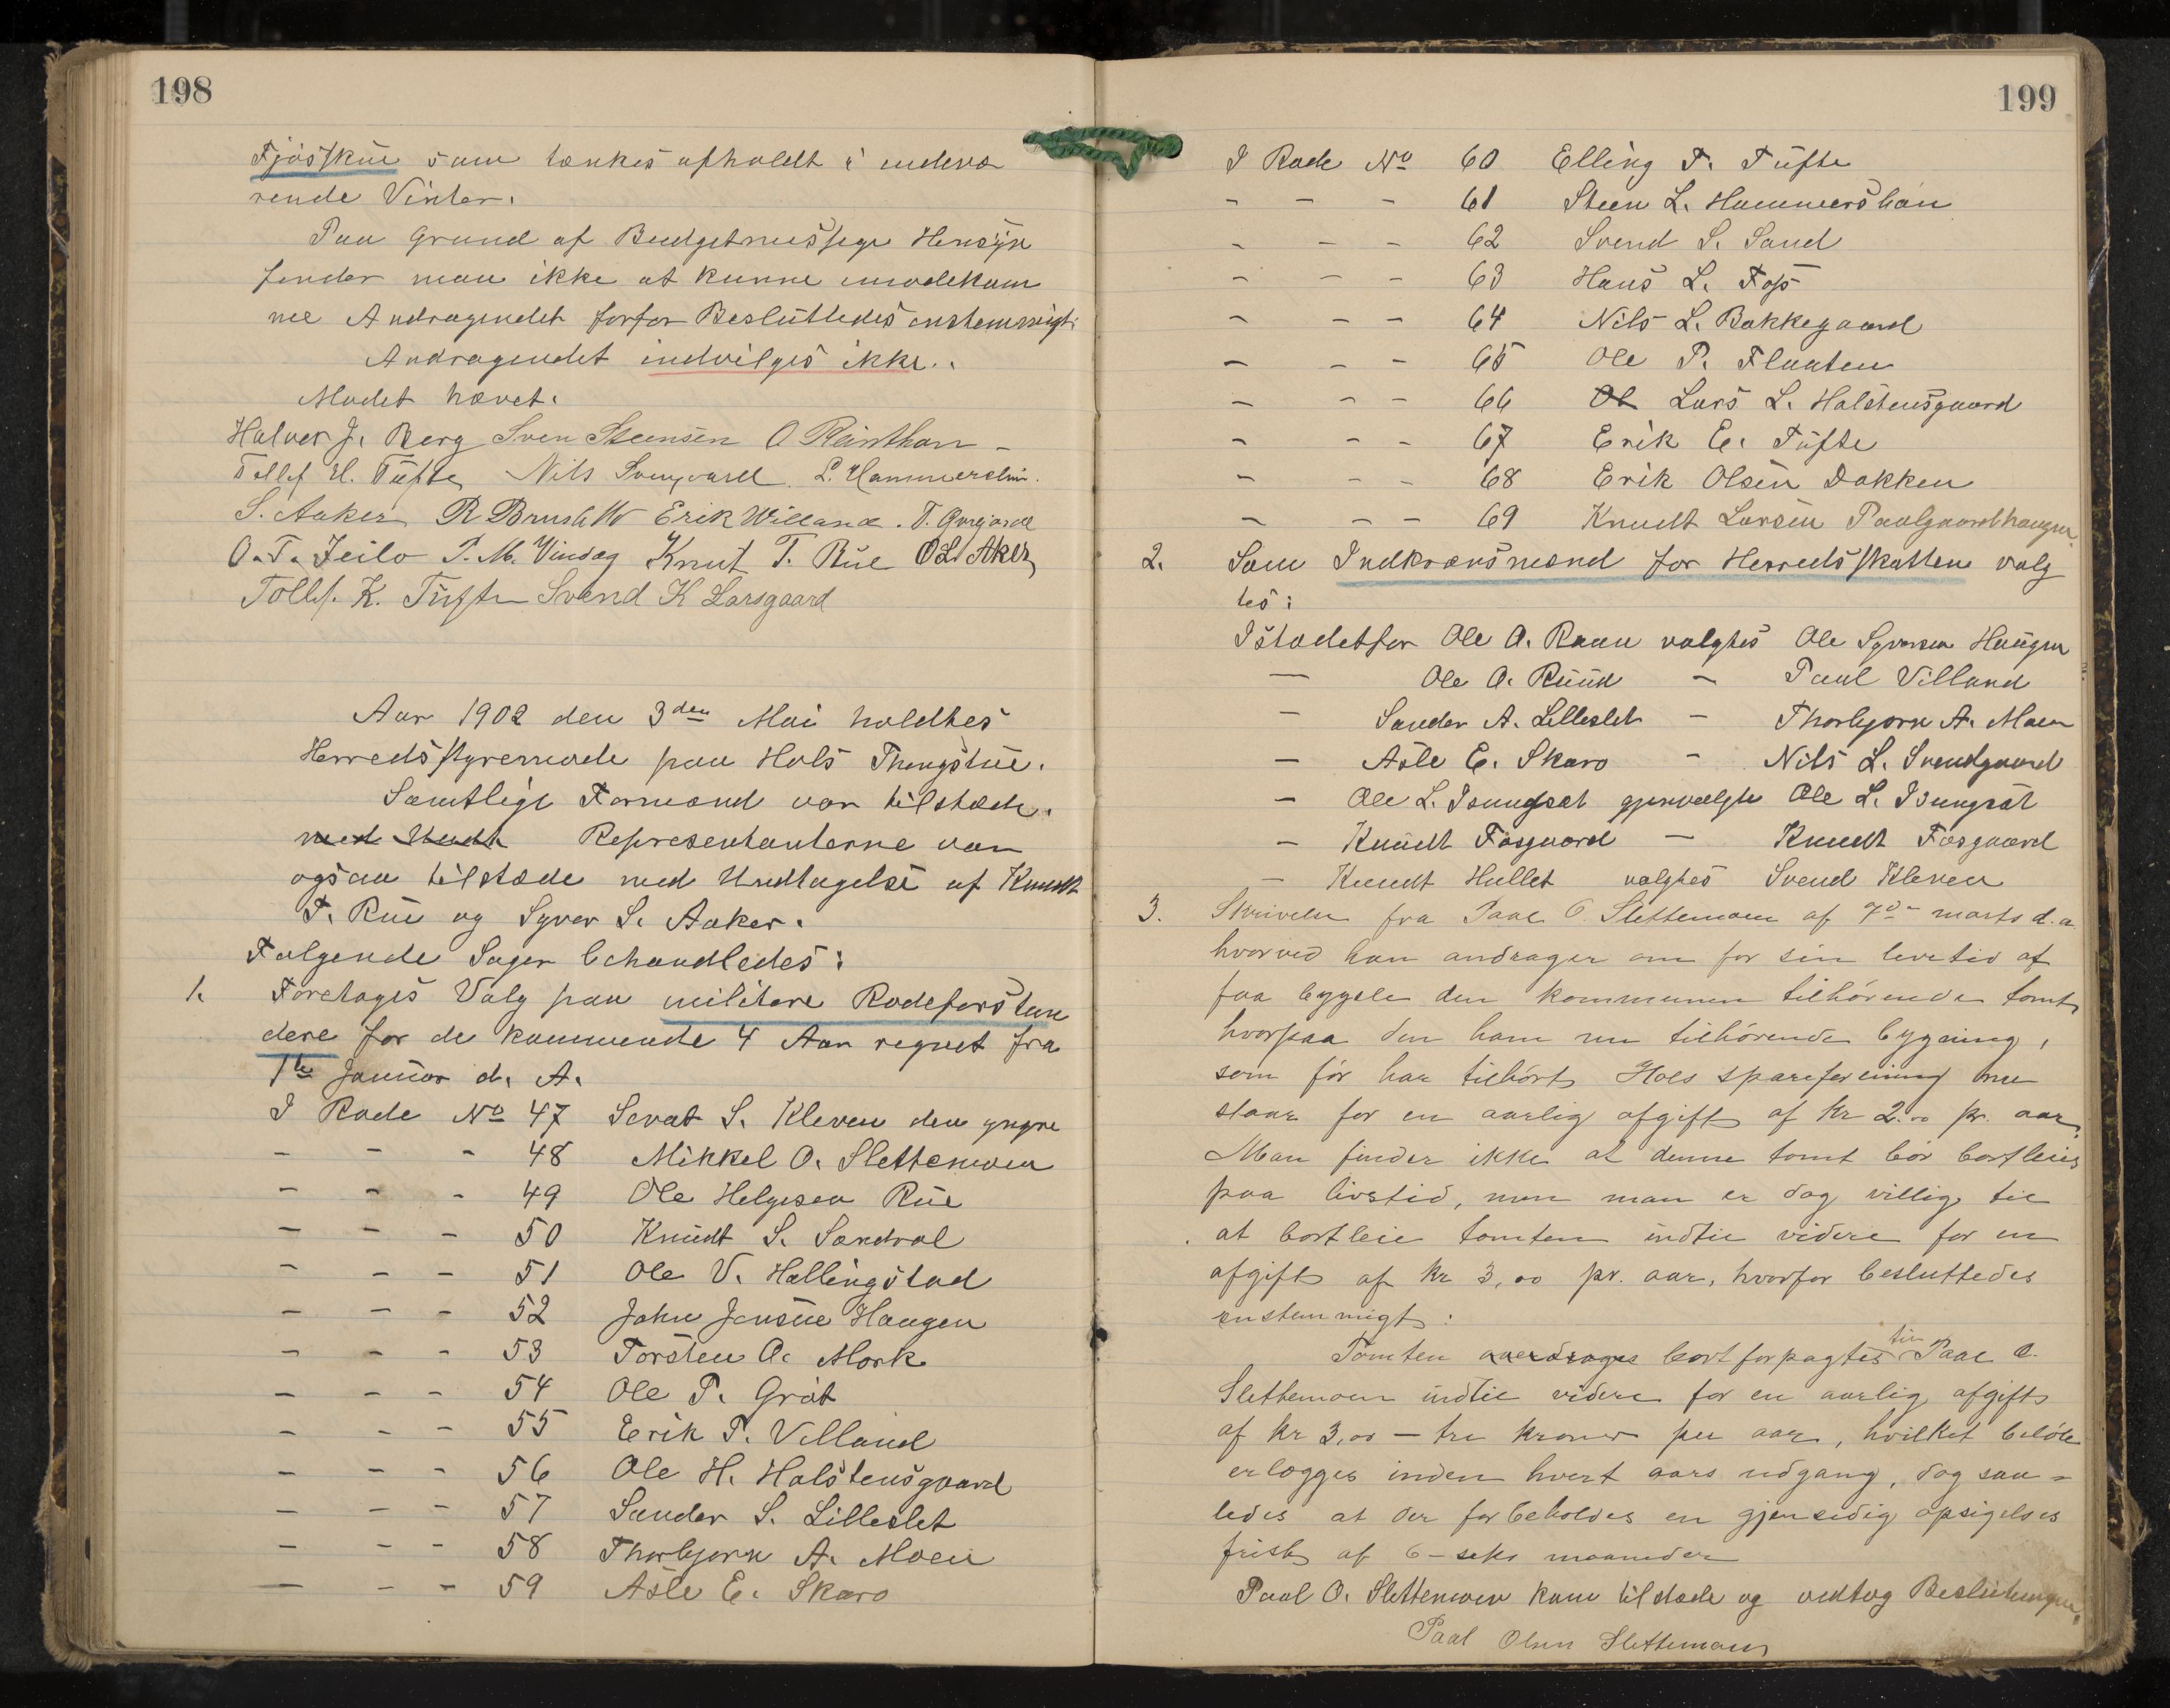 198
Fjösskue som tænkes afholdt i indevæ
rende Vinter.
Paa Grund af Budgetmessige Hensyn
finder man ikke at kunne imødekom
me Andragendet forfor Beslüttedes enstemmigt:
Andragendet indvilges ikke..
Mødet hævet.
Halvor J. Berg Sven Steensen O
Tollef H. Tüfte Nils L. Hammersbøn.
S. Aaker R Erik Villand. T.
O. T. Jeilo P. M. Vindeg Knut T. Rüe O L. Aker
Tollf. K. Tüfte Svend K Larsgaard
Aar 1902 den 3den Mai holdtes
Herredsstyremøde paa Hols Thingstüe.
Samtlige Formænd var tilstæde.
med Repræsentanterne var
ogsaa tilstæde med Undtagelse af Knudt
T. Rüe og Syver S. Aaker.
Følgende Sager behandledes:
1. Foretoges Valg paa militære Rodeforstan
dere for de kommende 4 Aar regnet fra
1ste Janüar d. A.
I Rode No 47 Sevat S. Kleven den yngre
- - - 48 Mikkel O. Slettemoen
- - - 49 Ole Helgesen Rüe
- - - 50 Knüdt S. Sandvol
- - - 51 Ole V. Hallingstad
- - - 52 John Jensen Haugen
- - - 53 Torsten O. Mork
- - - 54 Ole P. Gröt
- - - 55 Erik P. Villand
- - - 56 Ole H. Holstensgaard
- - - 57 Sander S. Lilleslet
- - - 58 Thorbjørn A. Moen
- - - 59 Asle E. Skaro
199
I Rode No 60 Elling T. Tüfte
- - - 61 Steen L. Hammersbøn
- - - 62 Svend S. Sand
- - - 63 Hans L. Foss
- - - 64 Nils L. Bakkegaard
- - - 65 Ole P. Flaaten
- - - 66 Ol Lars L. Holstensgaard
- - - 67 Erik E. Tüfte
- - - 68 Erik Olsen Dokken
- - - 69 Knudt Larsen Paalgaardhaugen
2. Som Indkrævsmænd for Herredsskatten valg
tes:
Istædetfor Ole A. Raan valgtes Ole Syversen Haugen
- Ole O. Rüüd - Paul Villand
- Sander A. Lilleslet - Thorbjørn A. Moen
- Asle E. Skaro - Nils L. Svendgaard
- Ole L. Isungset gjenvalgte Ole L. Isungset
- Knüdt Fosgaard - Knudt Fosgaard
- Knudt Hullet valgtes Svend Kleven
3. Skrivelse fra Paal O. Slettemoen af 7de marts d.a.
hvorved han andrager om for sin levetid at
faa bygsle den kommunen tilhørende tomt,
hvorpaa den ham nu tilhørende bygning,
som før har tilhört Hols spareforening nu
staar for en aarlig afgift af kr 2.00 pr. aar.
Man finder ikke at denne tomt bör bortleies
paa livstid, men man er dog villig til
at bortleie tomten indtil videre for en
afgift af kr 3,00 pr. aar, hvorfor besluttedes
enstemmigt:
Tomten overdrages bortforpagtes til Paal O.
Slettemoen indtil videre for en aarlig afgift
af kr 3,00 - tre kroner per aar, hvilket belöb
erlægges inden hvert aars udgang, dog saa-
ledes at der forbeholdes en gjensidig opsigelses
frist af 6- seks maaneder
Paal O. Slettemoen kom tilstæde og vedtog Beslutningen.
Paal Olsen Slettemoen